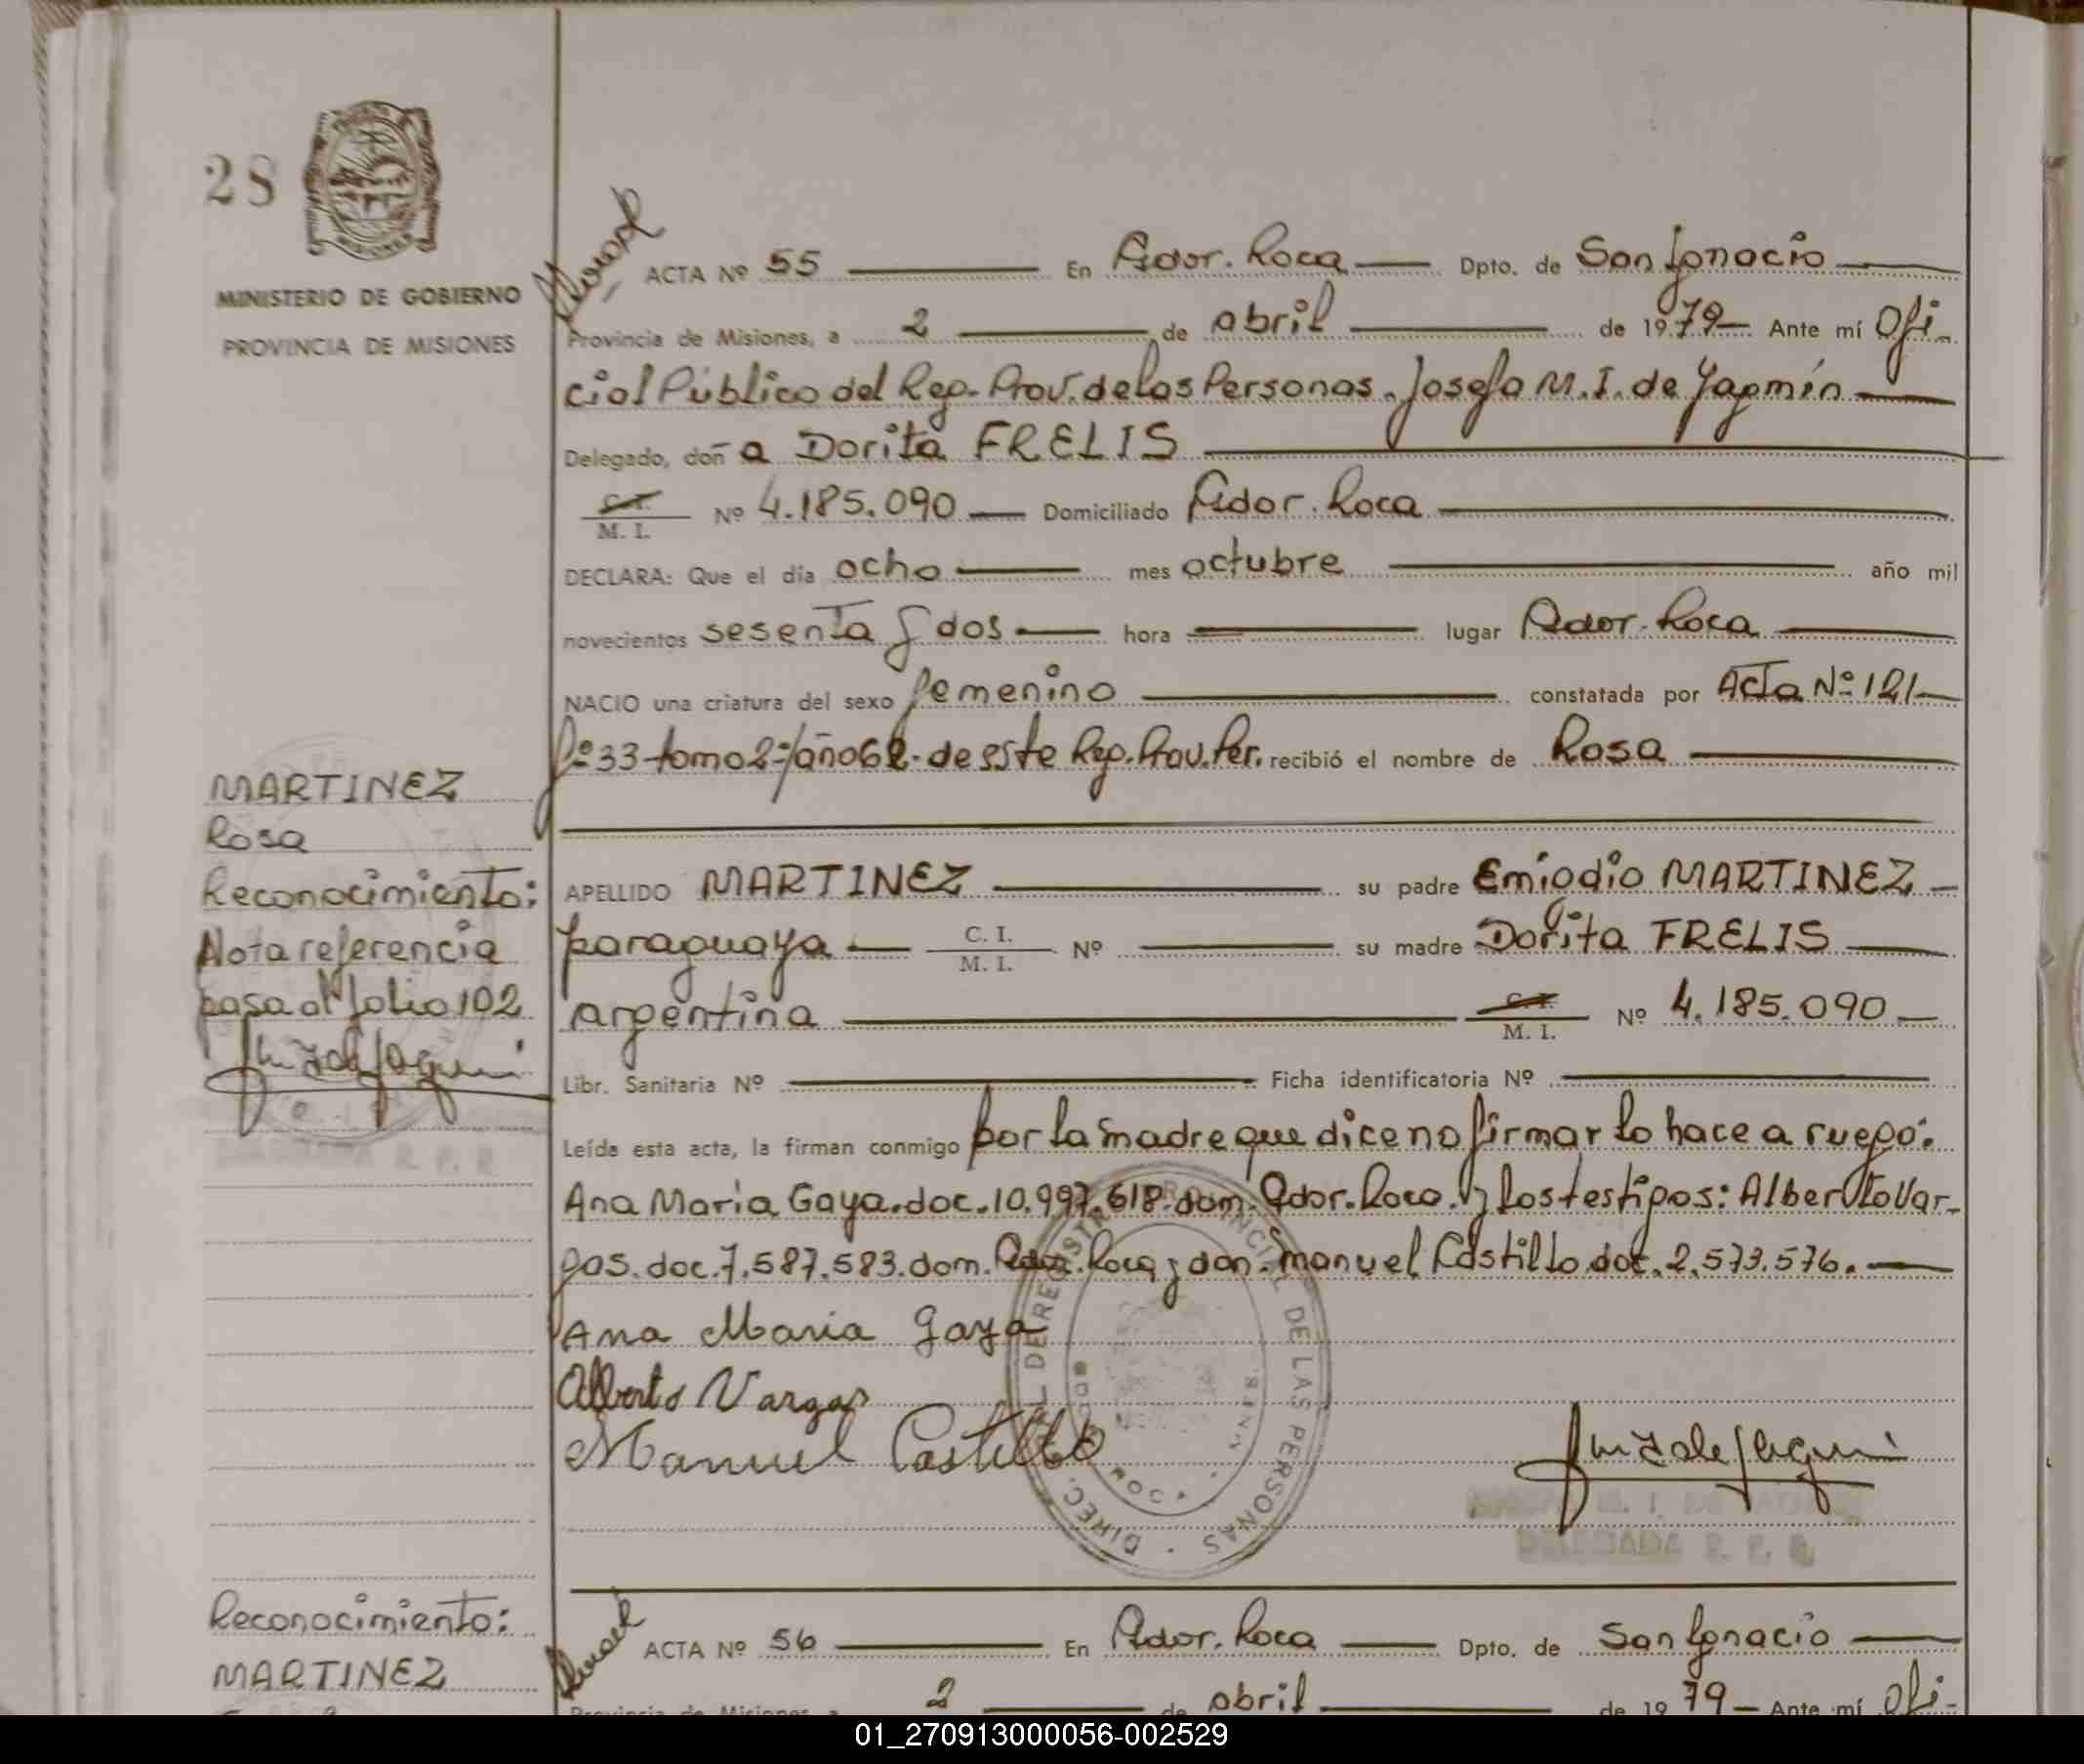 28
MINISTERIO DE GOBIERNO
PROVINCIA DE MISIONES
ACTA Nº 55 En Gdor. Roca Dpto. de San Ignacio
Provincia de Misiones, a 2 de abril de 1979 Ante mí Ofi-
cial Público del Reg. Prov. de las Personas. Josefa M. I. de Yagmín
Delegado, doña Dorita FRELIS
C. I.
M. I. Nº 4.185.090 Domiciliado Gdor. Roca
DECLARA: Que el día ocho mes octubre año mil
novecientos sesenta y dos hora lugar Gdor. Roca
NACIO una criatura del sexo femenino constatada por Acta Nº 121
fº 33 tomo 2º/año 62. de este Reg. Prov. Per. recibió el nombre de Rosa
MARTINEZ
Rosa
Reconocimiento:
Nota referencia
pasa al folio 102
APELLIDO MARTINEZ su padre Emigdio MARTINEZ
paraguaya C. I.
M. I. Nº su madre Dorita FRELIS
argentina C. I.
M. I. Nº 4.185.090
Libr. Sanitaria Nº Ficha identificatoria Nº
Leída esta acta, la firman conmigo por la madre que dice no firmar lo hace a ruego:
Ana Maria Gaya. doc. 10.997.618. dom. Gdor. Roca. y los testigos: Alberto Var-
gas. doc. 7.587.583. dom. Gdor. Roca y don. Manuel Castillo doc. 2.573.576.
Ana Maria Gaya
Alberto Vargas
Manuel Castillo
DIREC. DEL REGISTRO PROVINCIAL DE LAS PERSONAS
ROCA
DELEGADA R. P. P.
Reconocimiento:
MARTINEZ
ACTA Nº 56 En Gdor. Roca Dpto. de San Ignacio
Provincia de Misiones, a 2 de abril de 1979 Ante mí Ofi-
01_270913000056-002529